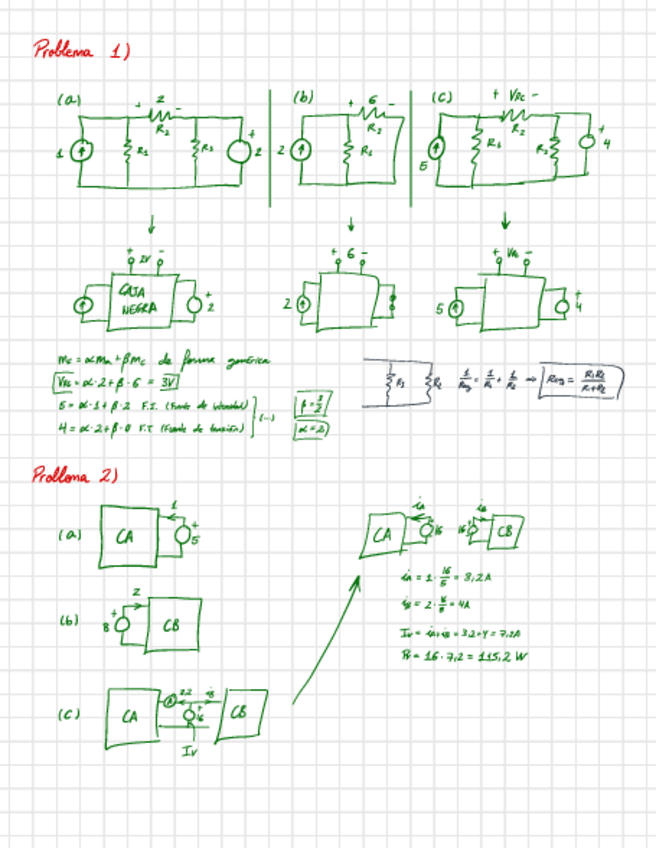 Problema 1)
(a)
+ 2 -
R2
1
R1
R3
+
2
(b)
+ 6 -
R2
2
R1
(c)
+ VRC -
R2
5
R1
R3
+
4
+ 2V -
CAJA
NEGRA
+
2
+ 6 -
2
+ -
5
+
4
de forma genérica
= α·2+β·6 = 3V
5 = α·1+β·2 F.I. (Fuente de intensidad)
4 = α·2+β·0 F.T (Fuente de tensión)
(...)
α=2
1/Req = 1/R1 + 1/R2 ⇒ Req = R1R2/R1+R2
Problema 2)
(a)
CA
1
+
5
(b)
2
8
+
CB
(c)
CA
iB
+
16
CB
Iv
CA
iA
+
16
16
+
iB
CB
iA = 1·16/5 = 3,2A
iB = 2·16/8 = 4A
Iv = iA+iB = 3,2+4 = 7,2A
= 16·7,2 = 115,2 W